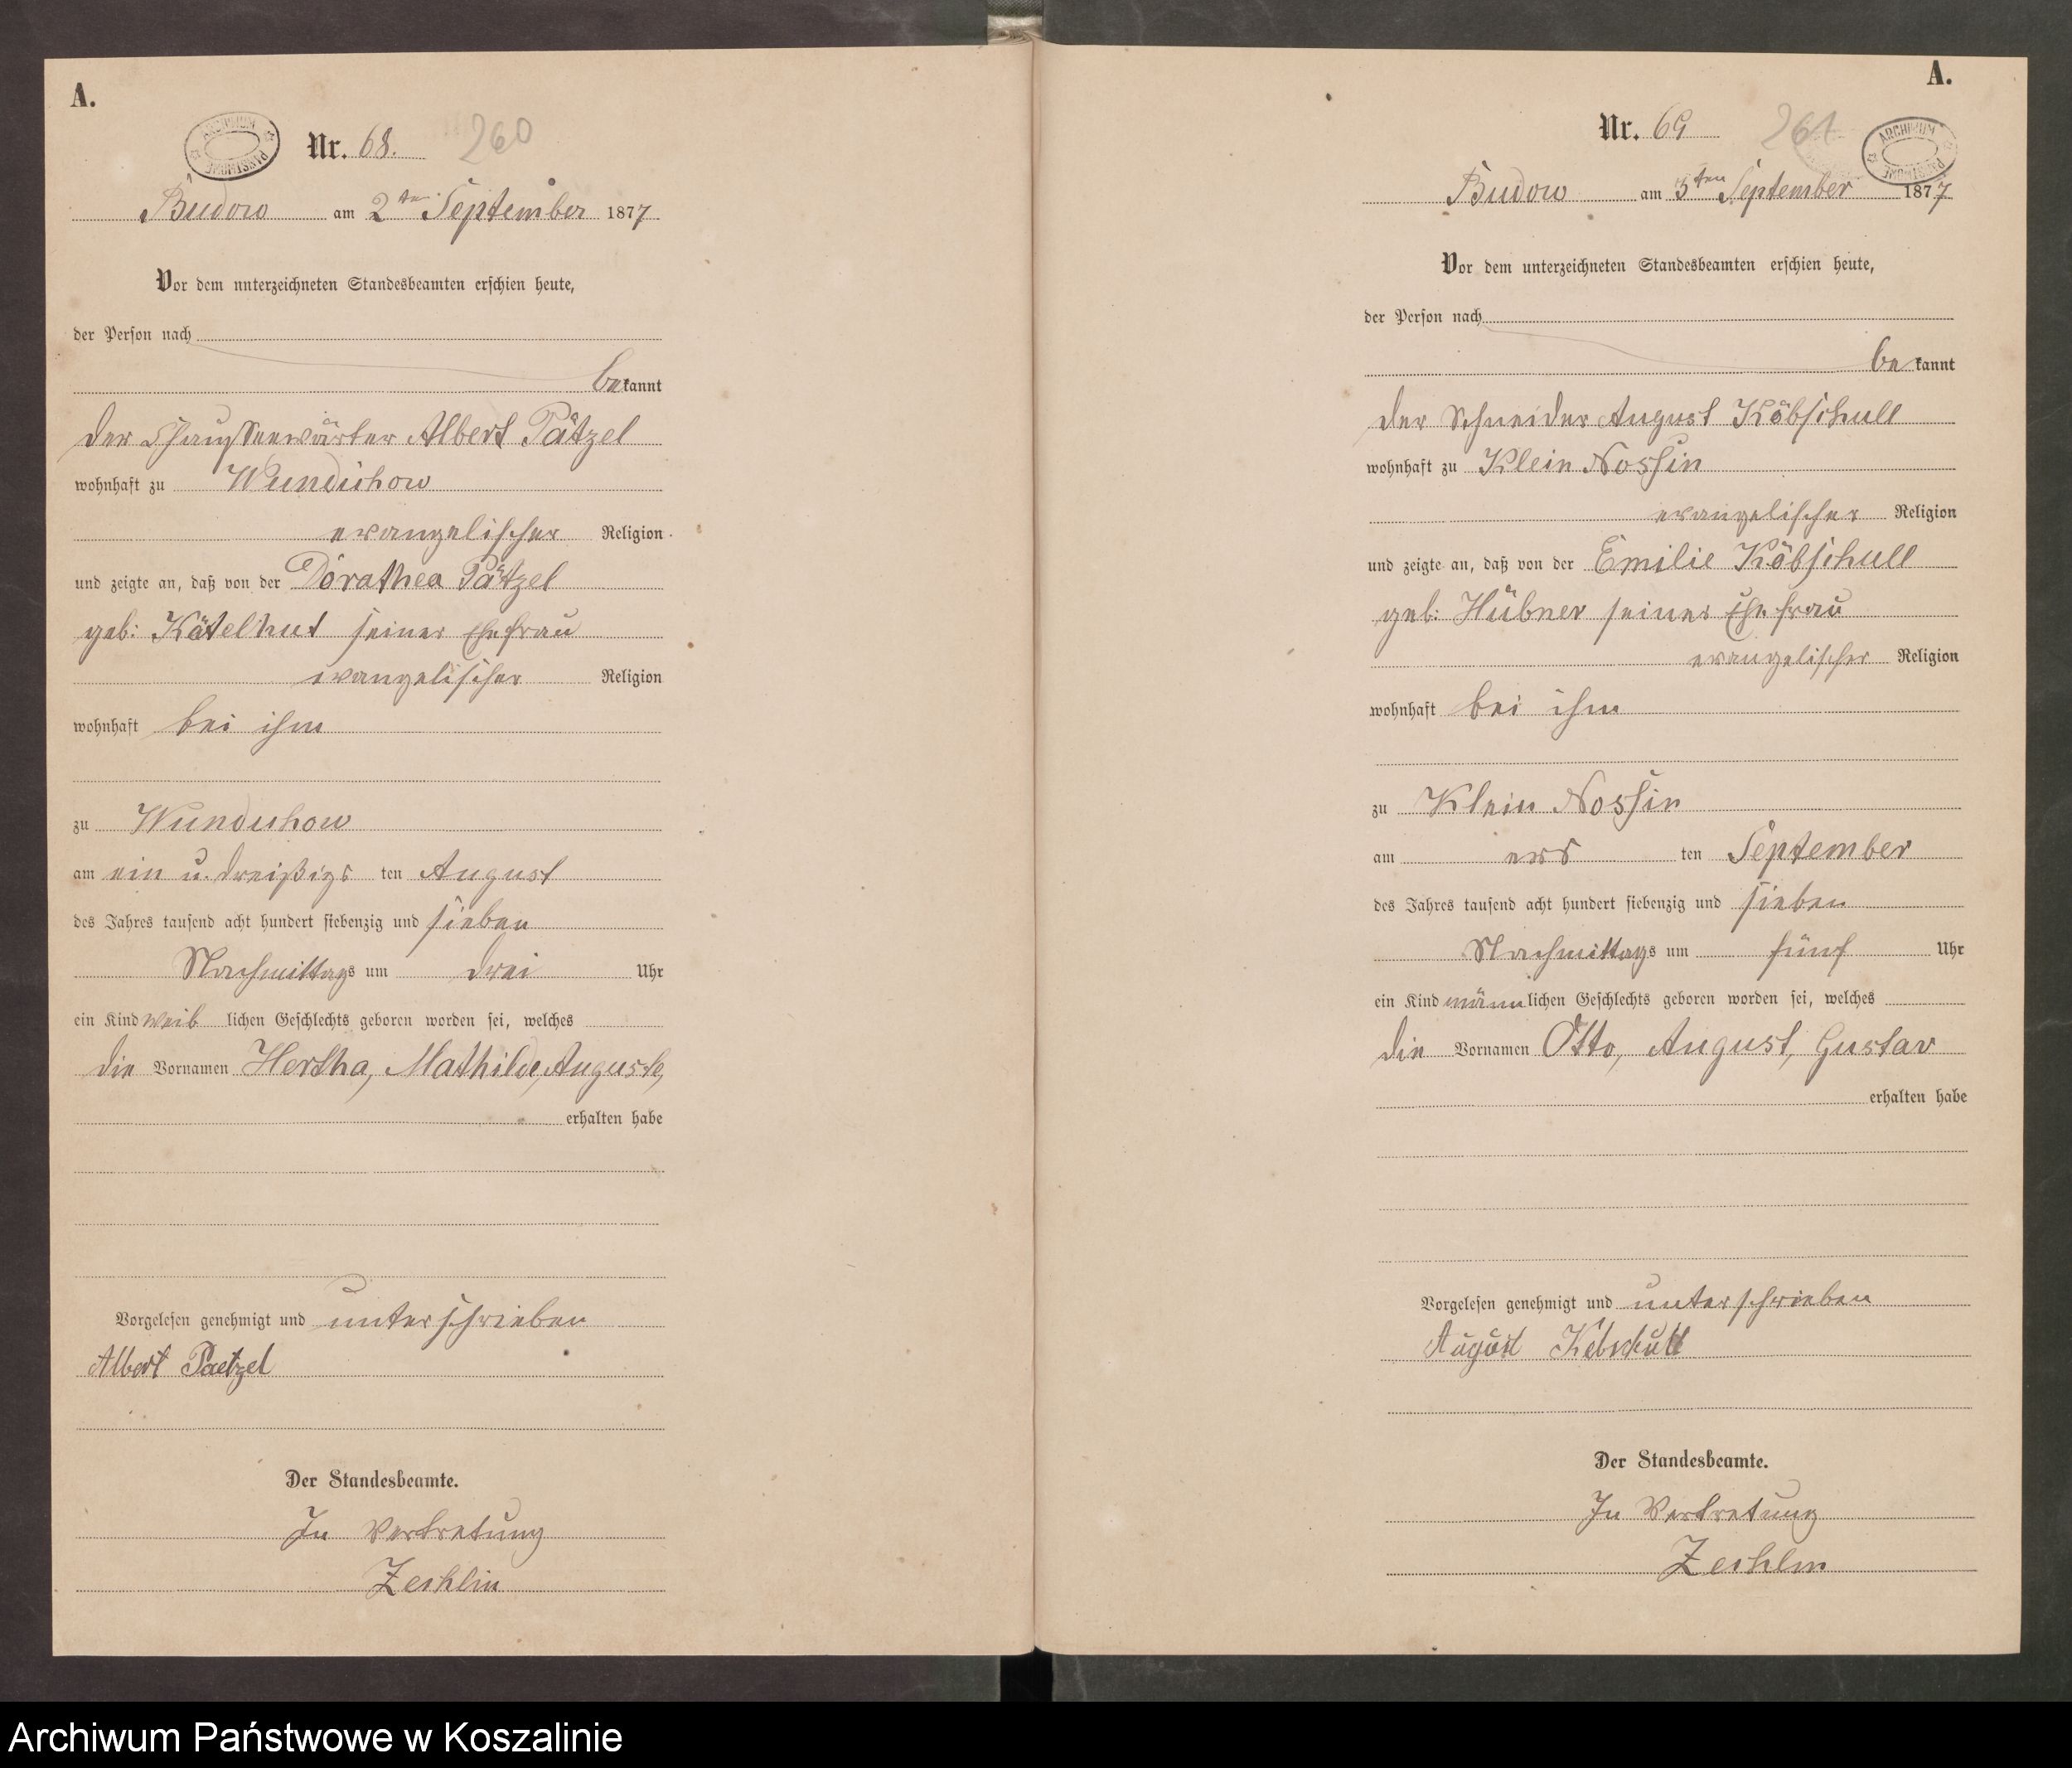 A.
Nr. 68. 260
Budow am 2ten September 1877
Vor dem unterzeichneten Standesbeamten erschien heute,
der Person nach
bekannt
der Chausseewärter Albert Pätzel
wohnhaft zu Wundichow
evangelischer Religion
und zeigte an, daß von der Dorathea Pätzel
geb: Kätelhut seiner Ehefrau
evangelischer Religion
wohnhaft bei ihm
zu Wundichow
am ein u. dreißigs ten August
des Jahres tausend acht hundert siebenzig und sieben
Nachmittags um drei Uhr
ein Kind weiblichen Geschlechts geboren worden sei, welches
die Vornamen Hertha, Mathilde, Auguste,
erhalten habe
Vorgelesen genehmigt und unterschrieben
Albert Paetzel
Der Standesbeamte.
In Vertretung
Zechlin
A.
Nr. 69 261
ARCHIWUM PAŃSTWOWE
Budow am 3ten September 1877
Vor dem unterzeichneten Standesbeamten erschien heute,
der Person nach
bekannt
der Schneider August Köbschull
wohnhaft zu Klein Nossin
evangelischer Religion
und zeigte an, daß von der Emilie Köbschull
geb: Hübner seiner Ehefrau
evangelischer Religion
wohnhaft bei ihm
zu Klein Nossin
am ers ten September
des Jahres tausend acht hundert siebenzig und sieben
Nachmittags um fünf Uhr
ein Kind männlichen Geschlechts geboren worden sei, welches
die Vornamen Otto, August, Gustav
erhalten habe
Vorgelesen genehmigt und unterschrieben
August Kebschull
Der Standesbeamte.
In Vertretung
Zechlin
Archiwum Państwowe w Koszalinie